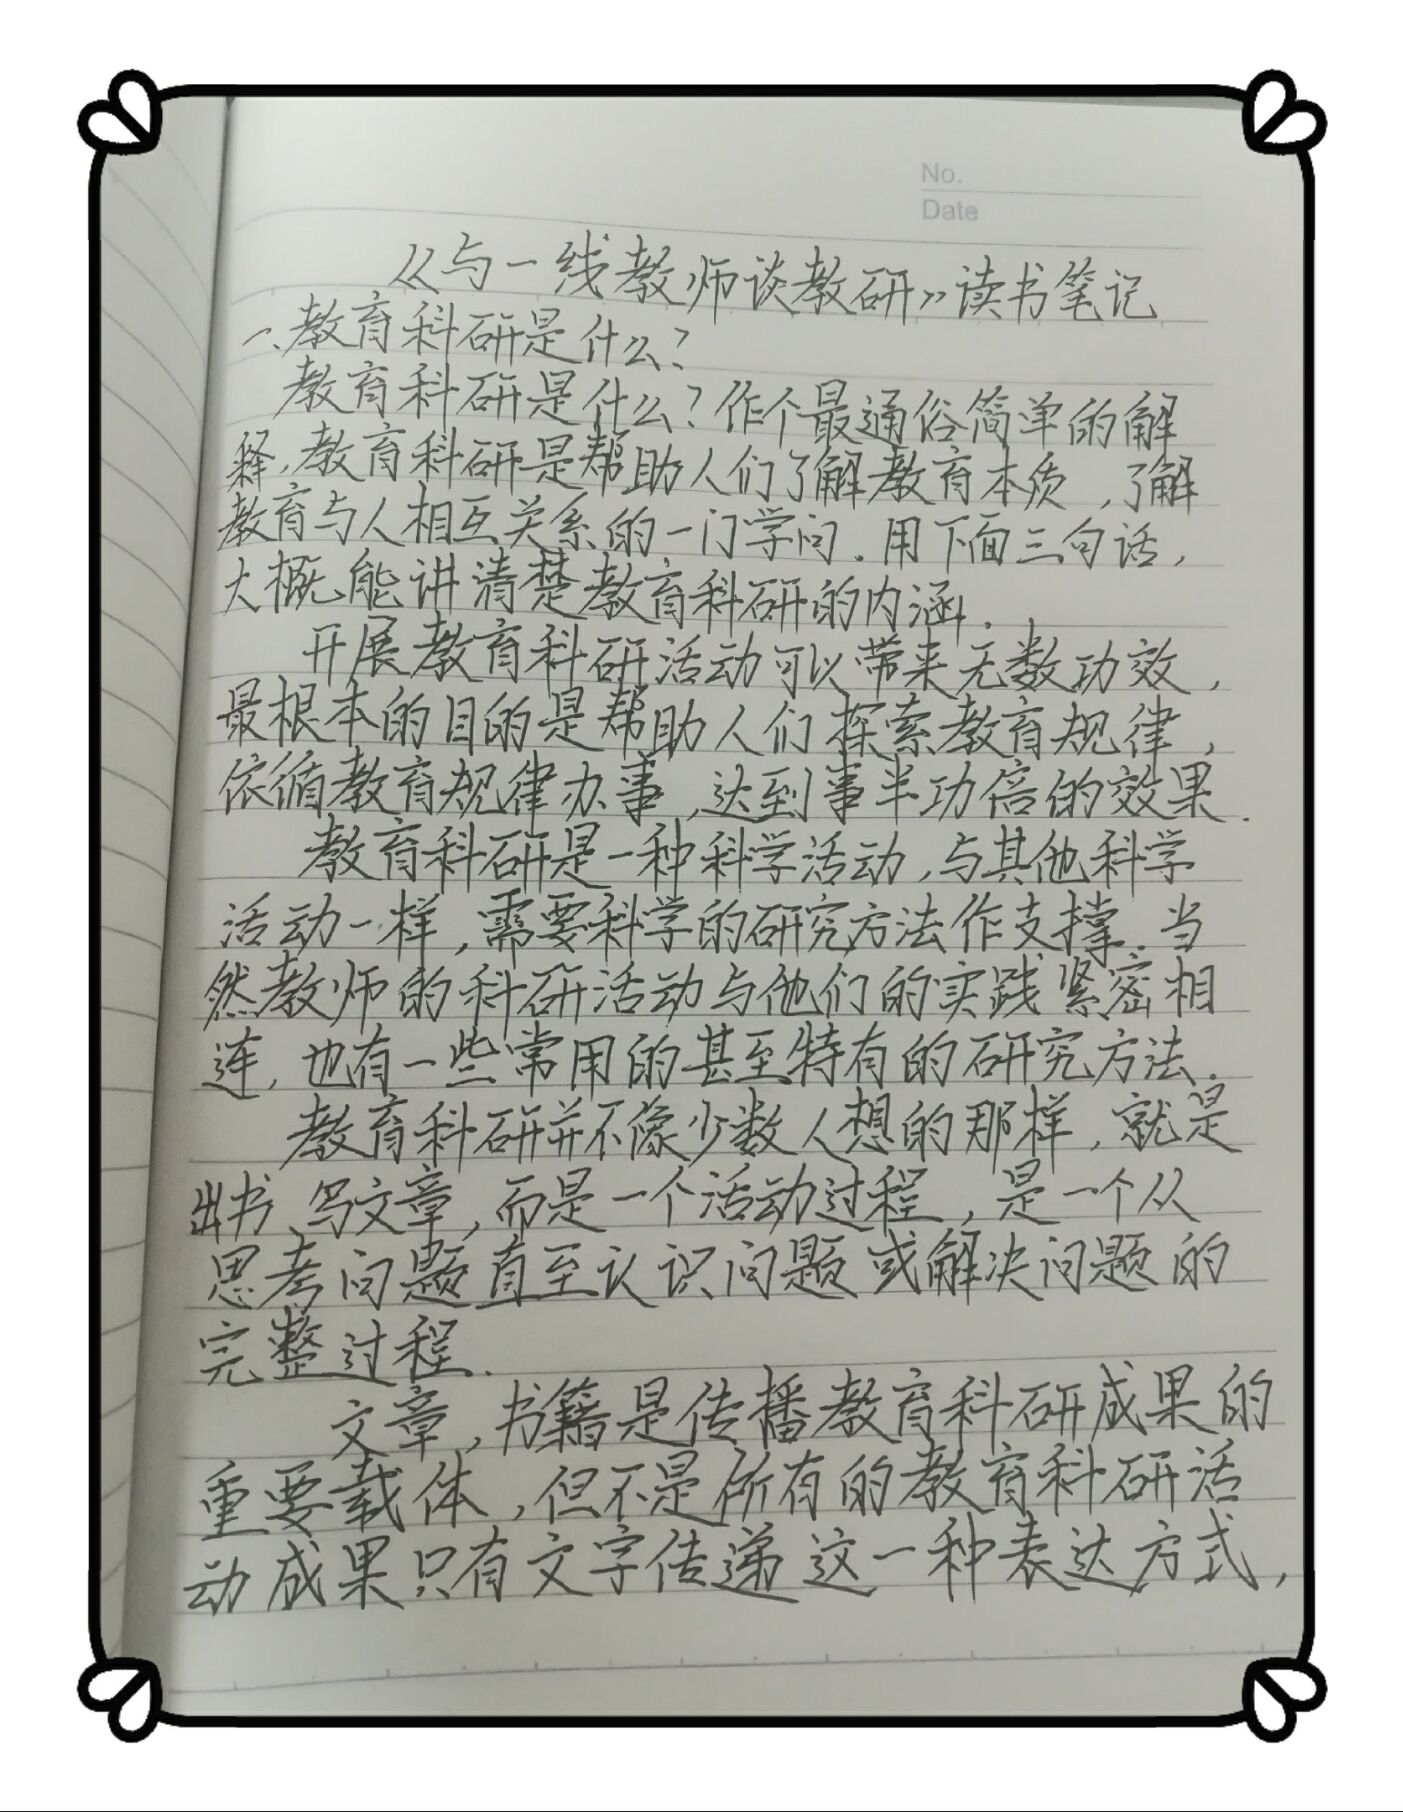 No.
Date
《与一线教师谈教研》读书笔记
一、教育科研是什么?
教育科研是什么?作个最通俗简单的解
释,教育科研是帮助人们了解教育本质,了解
教育与人相互关系的一门学问.用下面三句话,
大概能讲清楚教育科研的内涵.
开展教育科研活动可以带来无数功效,
最根本的目的是帮助人们探索教育规律,
依循教育规律办事,达到事半功倍的效果.
教育科研是一种科学活动,与其他科学
活动一样,需要科学的研究方法作支撑.当
然教师的科研活动与他们的实践紧密相
连,也有一些常用的甚至特有的研究方法.
教育科研并不像少数人想的那样,就是
出书、写文章,而是一个活动过程,是一个从
思考问题直至认识问题或解决问题的
完整过程.
文章,书籍是传播教育科研成果的
重要载体,但不是所有的教育科研活
动成果只有文字传递这一种表达方式,